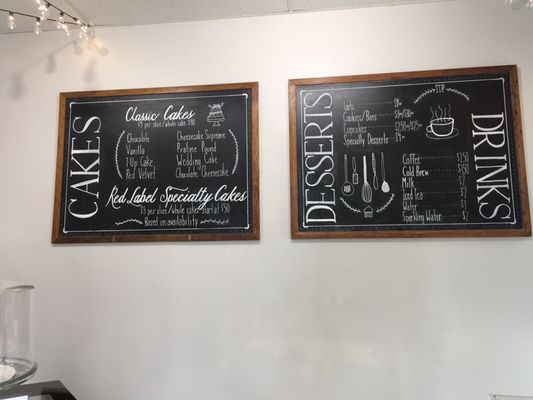 CAKES
Classic Cakes
Chocolate
Vanilla
7-Up Cake
Red Velvet
Cheesecake Supreme
Praline Pound
Wedding Cake
Chocolate Cheesecake
Red Label Specialty Cakes
$5 per slice/whole cakes start at $50
Based on availability
DESSERTS
Tarts
Cookies/Bars
Cupcakes
Specialty Desserts
DRINKS
Coffee
Cold brew
Milk
Iced Tea
Water
Sparkling Water